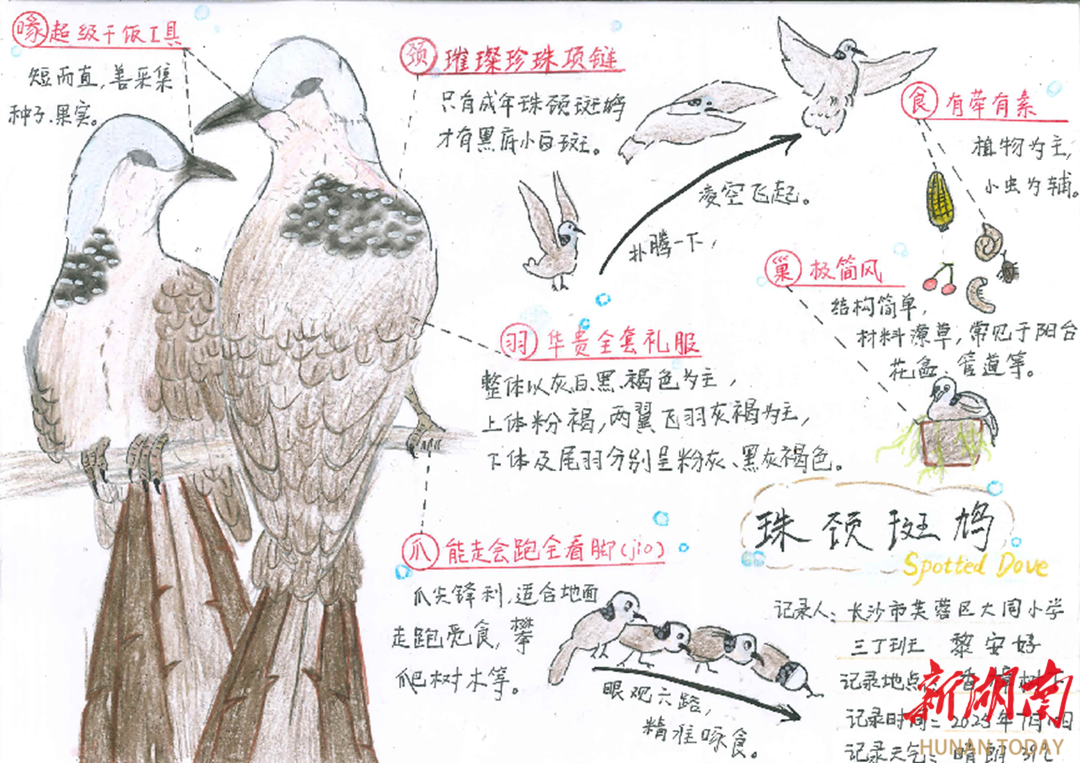 喙 超级干饭工具
短而直,善采集
种子、果实。
颈 璀璨珍珠项链
只有成年珠颈斑鸠
才有黑底小白斑。
扑腾一下,
凌空飞起。
食 有荤有素
植物为主,
小虫为辅。
巢 极简风
结构简单,
材料潦草,常见于阳台
花盆、管道等。
羽 华贵全套礼服
整体以灰白、黑、褐色为主,
上体粉褐,两翼飞羽灰褐为主,
下体及尾羽分别呈粉灰、黑灰褐色。
爪 能走会跑全看脚(jio)
爪尖锋利,适合地面
走跑觅食,攀
爬树木等。
眼观六路,
精准啄食。
珠颈斑鸠
Spotted Dove
记录人:长沙市芙蓉区大同小学
三丁班 黎安好
记录地点
记录时间:2023年
记录天气:晴朗
新湖南
HUNAN TODAY